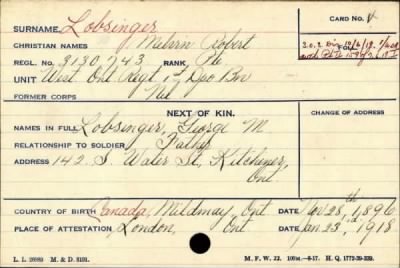 SURNAME Lobsinger CARD NO.
CHRISTIAN NAMES Melvin Robert
REGL. NO. 3130743 RANK Pte.
UNIT West Ont Regt 1st Dpo Bn
FORMER CORPS Nil
NEXT OF KIN. CHANGE OF ADDRESS
NAMES IN FULL Lobsinger, George M
RELATIONSHIP TO SOLDIER Father
ADDRESS 142 S. Water St, Kitchener,
Ont
COUNTRY OF BIRTH Canada, Mildmay Ont DATE Nov 28th 1896
PLACE OF ATTESTATION London, Ont DATE Jan 23rd 1918
L. L. M. & D. M. F. W. 22. H. Q. 1772-39-339.